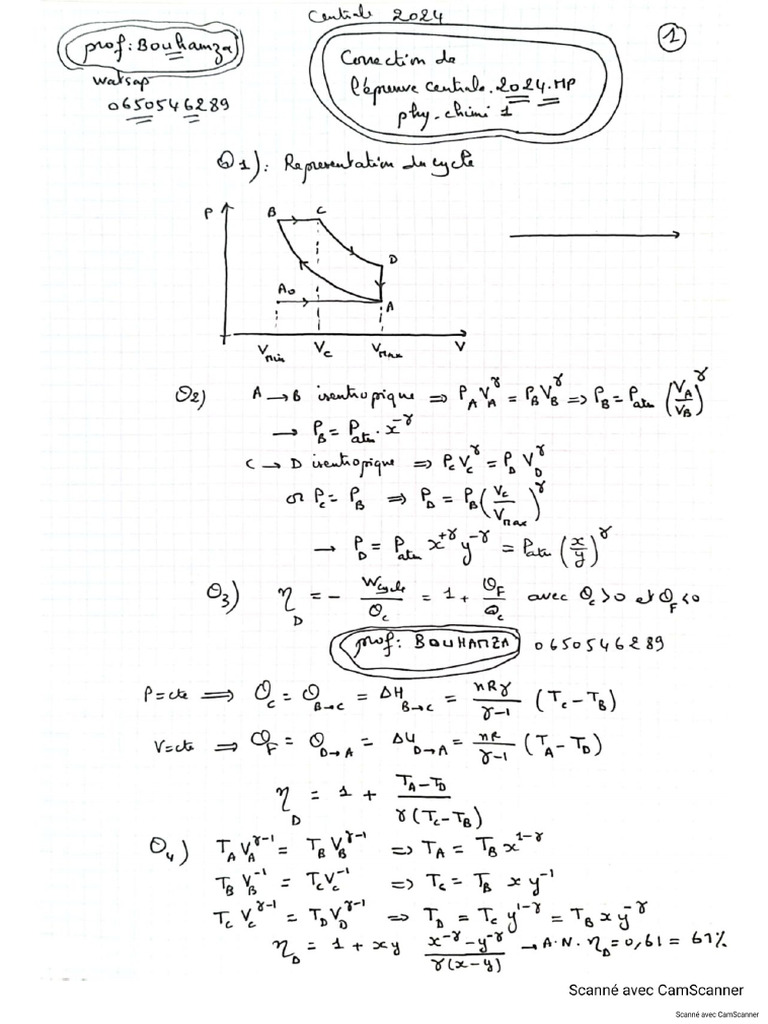 Centrale 2024
prof: Bouhamza
watsap
0650546289
1
Correction de
l'épreuve centrale.2024.MP
phy-chimi 1
Q1): Representation du cycle
P
B
C
D
A₀
A
V_min
V_c
V_max
V
Q2) A → B isentropique ⇒ P_A V_A^γ = P_B V_B^γ ⇒ P_B = P_atm (V_A/V_B)^γ
→ P_B = P_atm . x^-γ
C → D isentropique ⇒ P_C V_C^γ = P_D V_D^γ
or P_C = P_B ⇒ P_D = P_B (V_C/V_max)^γ
→ P_D = P_atm x^+γ y^-γ = P_atm (x/y)^γ
Q3) η_D = - W_cycle/Q_C = 1 + Q_F/Q_C avec Q_C > 0 et Q_F < 0
prof: BOUHAMZA 0650546289
P=cte ⇒ Q_C = Q_B→C = ΔH_B→C = nRγ/γ-1 (T_C - T_B)
V=cte ⇒ Q_F = Q_D→A = ΔU_D→A = nR/γ-1 (T_A - T_D)
η_D = 1 + T_A - T_D/γ(T_C - T_B)
Q4) T_A V_A^γ-1 = T_B V_B^γ-1 ⇒ T_A = T_B x^1-γ
T_B V_B^-1 = T_C V_C^-1 ⇒ T_C = T_B x y^-1
T_C V_C^γ-1 = T_D V_D^γ-1 ⇒ T_D = T_C y^1-γ = T_B x y^-γ
η_D = 1 + xy x^-γ - y^-γ/γ(x-y) → A.N. η_D = 0,61 = 61%
Scanné avec CamScanner
Scanné avec CamScanner